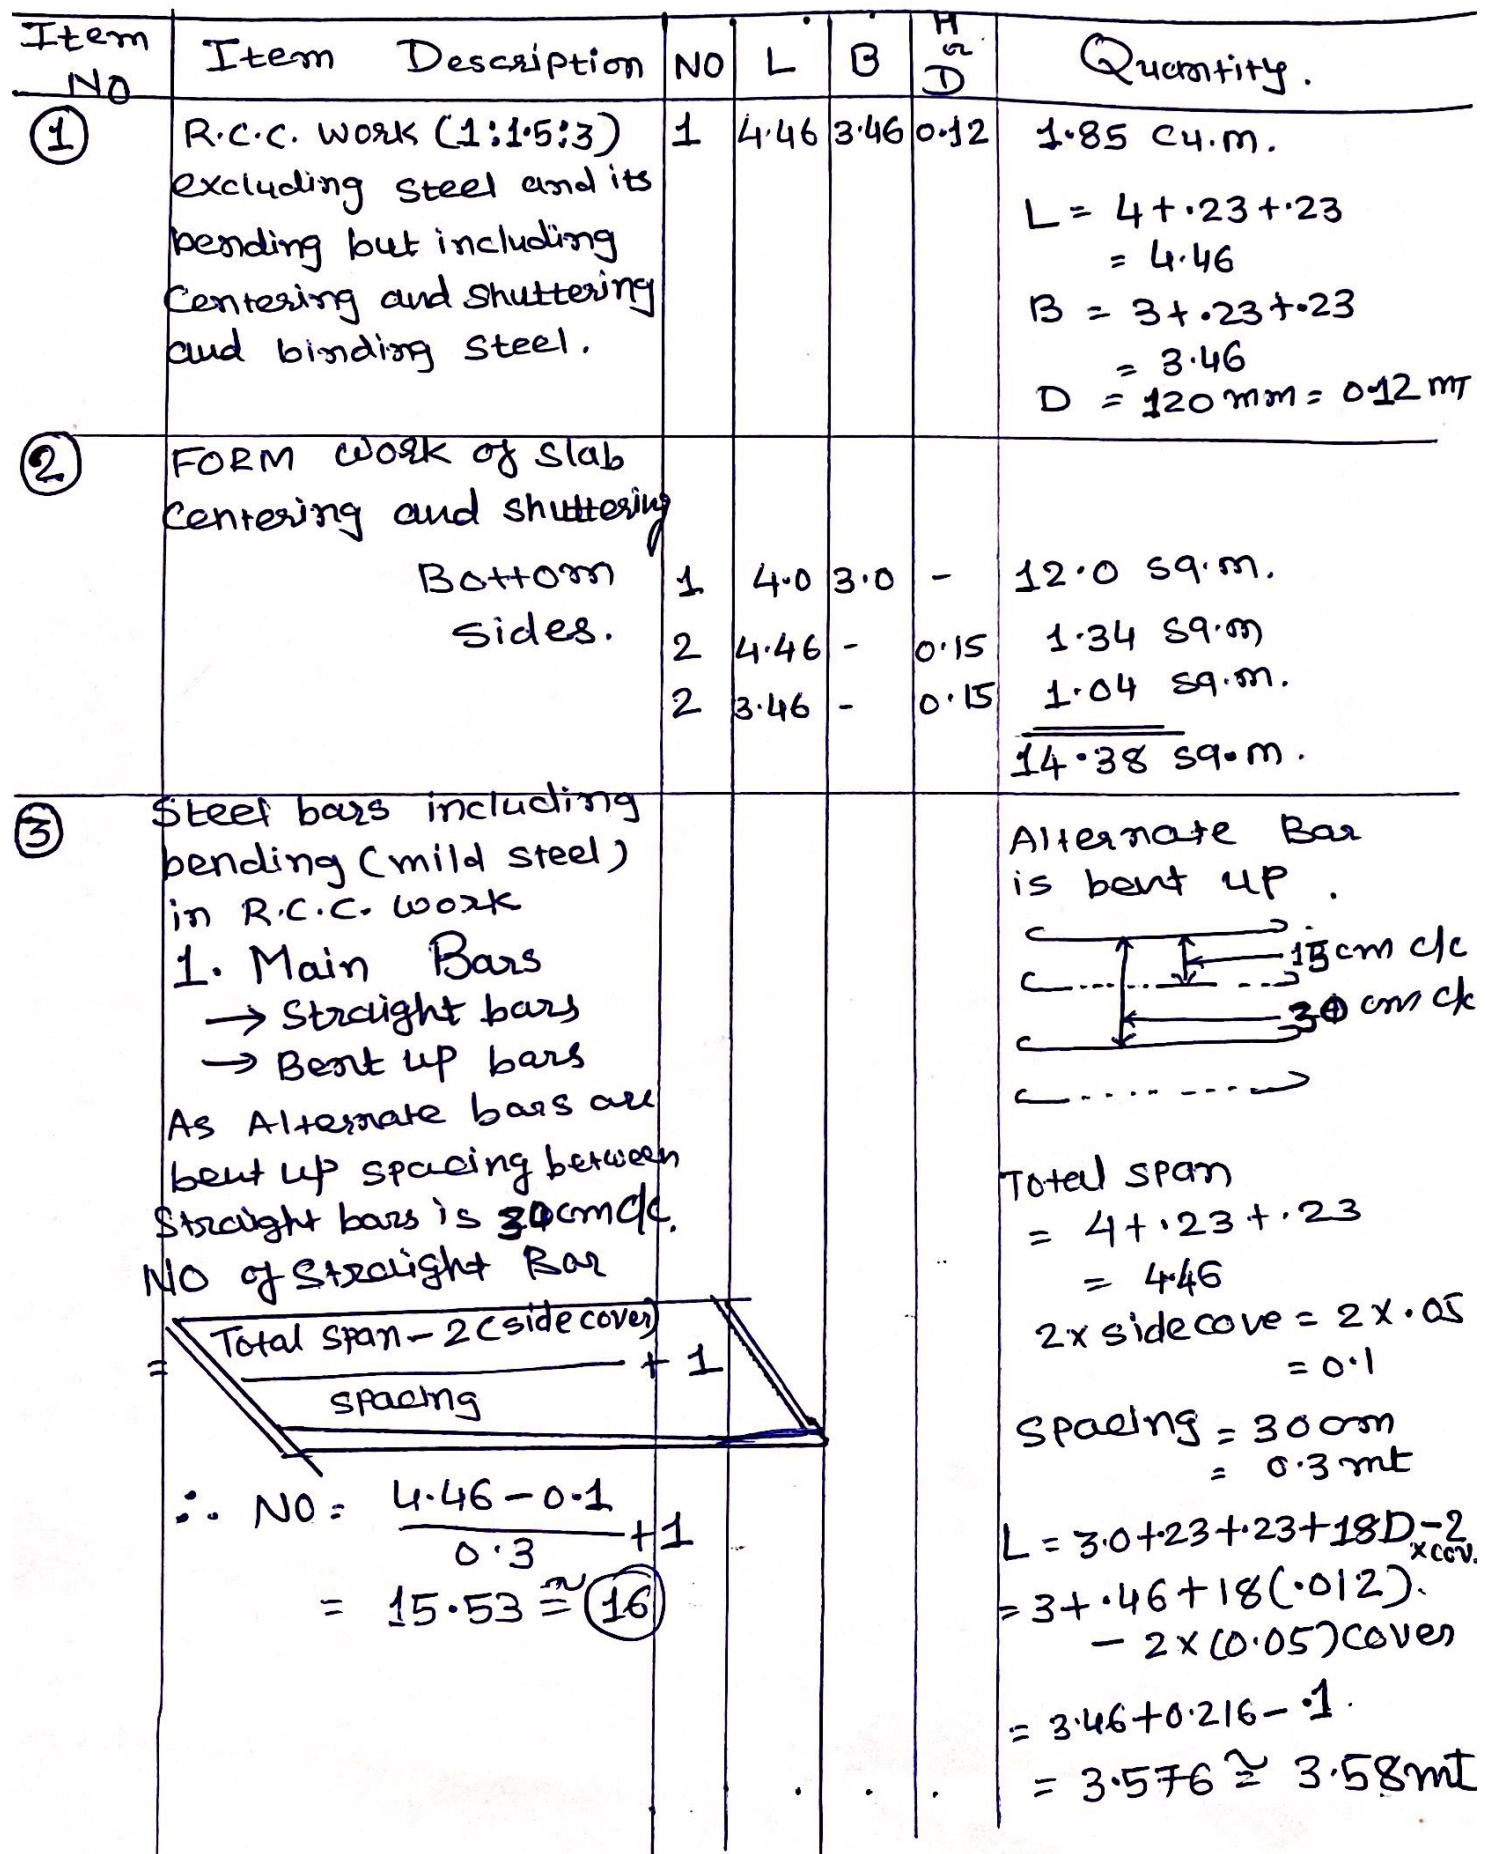 Item No | Item Description | NO | L | B | H or D | Quantity.
1 | R.C.C. Work (1:1.5:3) | 1 | 4.46 | 3.46 | 0.12 | 1.85 cu.m.
excluding steel and its
bending but including
Centering and shuttering
and binding steel.
L = 4+.23+.23
= 4.46
B = 3+.23+.23
= 3.46
D = 120 mm = 0.12 mt
2 | FORM work of slab
Centering and shuttering
Bottom | 1 | 4.0 | 3.0 | - | 12.0 sq.m.
Sides. | 2 | 4.46 | - | 0.15 | 1.34 sq.m
2 | 3.46 | - | 0.15 | 1.04 sq.m.
14.38 sq.m.
3 | Steel bars including
bending (mild steel)
in R.C.C. work
1. Main Bars
→ Straight bars
→ Bent up bars
As Alternate bars are
bent up spacing between
Straight bars is 30cm c/c.
NO of Straight Bar
= Total span - 2(side cover)
spacing
+ 1
∴ NO = 4.46 - 0.1
0.3
+1
= 15.53 ≅ 16
Alternate Bar
is bent up.
15 cm c/c
30 cm c/c
Total span
= 4+.23+.23
= 4.46
2x side cove = 2 x .05
= 0.1
Spacing = 30 cm
= 0.3 mt
L = 3.0+.23+.23+18D-2
x cov.
= 3+.46+18(.012).
- 2x(0.05)cover
= 3.46+0.216-.1.
= 3.576 ≅ 3.58mt